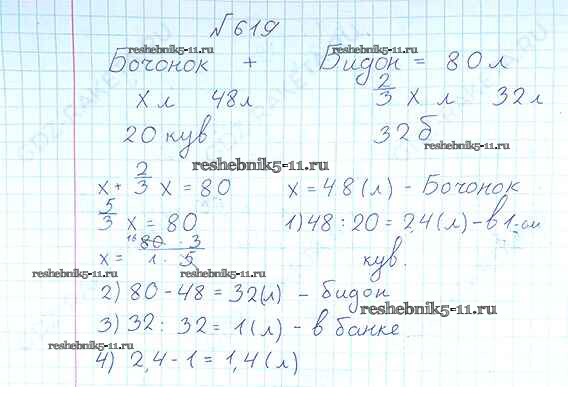 №619
reshebnik5-11.ru
Бочонок + Бидон = 80 л
x л 48л 2/3 x л 32 л
20 кув 32 б
reshebnik5-11.ru
reshebnik5-11.ru
x + 2/3 x = 80 x = 48 (л) - Бочонок
5/3 x = 80 1) 48 : 20 = 2,4 (л) - в 1-ом
x = 16 80 · 3 / 1 · 5 кув.
reshebnik5-11.ru
reshebnik5-11.ru
2) 80 - 48 = 32(л) - бидон
3) 32 : 32 = 1 (л) - в банке
reshebnik5-11.ru
reshebnik5-11.ru
4) 2,4 - 1 = 1,4 (л)